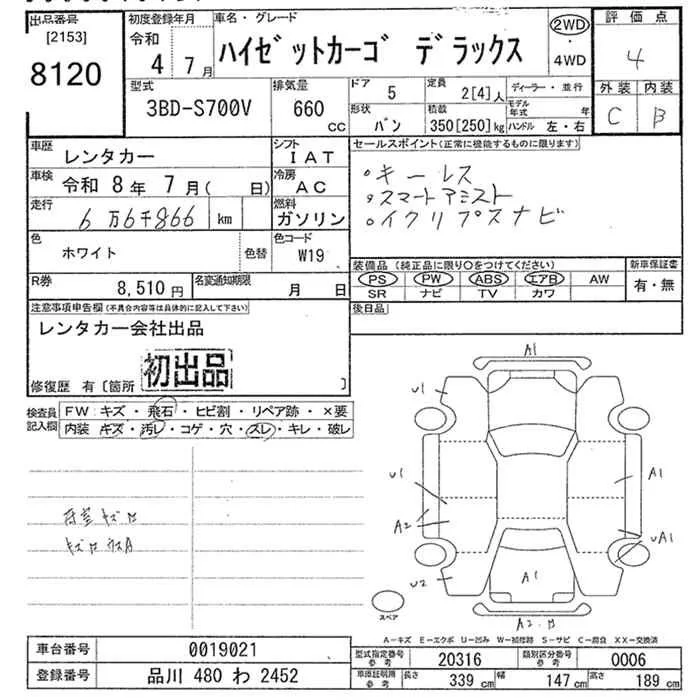 出品番号
[2153]
8120
初度登録年月
令和 4 7月
車名・グレード
ハイゼットカーゴ デラックス
2WD
・
4WD
評価点
4
外装 内装
C B
型式
3BD-S700V
排気量
660
CC
ドア
5
定員
2[4]人
ディーラー・並行
形状
バン
積載
350[250]kg
モデル年式 年
ハンドル 左・右
車歴
レンタカー
シフト
IAT
車検
令和 8年 7月( 日)
冷房
AC
走行
6万6千866 km
燃料
ガソリン
色
ホワイト
色替
色コード
W19
R券
8,510円
名変通知期限
月 日
セールスポイント(正常に機能するものに限ります)
・キーレス
・スマートアシスト
・イクリプスナビ
装備品(純正品に限り〇をつけてください)
PS PW ABS エアB AW
SR ナビ TV カワ
新車保証書
有・無
後日品
注意事項申告欄(不具合内容等は具体的に記入して下さい)
レンタカー会社出品
初出品
修復歴 有〔箇所 〕
検査員記入欄
FW:キズ・飛石・ヒビ割・リペア跡・×要
内装:キズ・汚レ・コゲ・穴・スレ・キレ・破レ
荷室キズ
A1
U1
U1
A1
A2
UA1
U2
A1
A2.B
スペア
A-キズ E-エクボ U-凹み W-補修跡 S-サビ C-腐食 XX-交換済
車台番号
0019021
登録番号
品川 480 わ 2452
型式指定番号
参考
20316
類別区分番号
参考
0006
車庫証明用
参考
長さ
339cm
幅
147cm
高さ
189cm